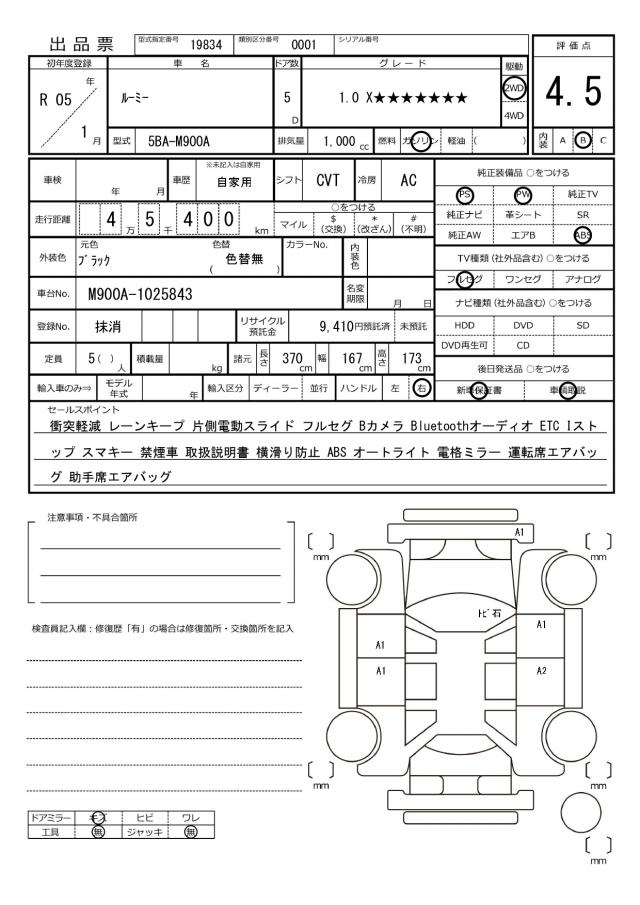 出品票 型式指定番号 19834 類別区分番号 0001 シリアル番号
評価点
4.5
内装 A B C
初年度登録 車名 ドア数 グレード 駆動
R 05 年 1 月
ルーミー 5 D 1.0 X★★★★★★★ 2WD 4WD
型式 5BA-M900A 排気量 1,000 cc 燃料 ガソリン 軽油 ( )
車検 年 月 車歴 ※未記入は自家用 自家用 シフト CVT 冷房 AC
走行距離 4 万 5 千 4 0 0 km
○をつける
マイル $(交換) *(改ざん) #(不明)
外装色 元色 ブラック 色替 ( 色替無 ) カラーNo. 内装色
車台No. M900A-1025843 名変期限 月 日
登録No. 抹消 リサイクル預託金 9,410円預託済 未預託
定員 5( )人 積載量 kg 諸元 長さ 370 cm 幅 167 cm 高さ 173 cm
輸入車のみ⇒ モデル年式 年 輸入区分 ディーラー 並行 ハンドル 左 右
純正装備品 ○をつける
PS PW 純正TV
純正ナビ 革シート SR
純正AW エアB ABS
TV種類(社外品含む)○をつける
フルセグ ワンセグ アナログ
ナビ種類(社外品含む)○をつける
HDD DVD SD
DVD再生可 CD
後日発送品 ○をつける
新車保証書 車輌取説
セールスポイント
衝突軽減 レーンキープ 片側電動スライド フルセグ Bカメラ Bluetoothオーディオ ETC Iスト
ップ スマキー 禁煙車 取扱説明書 横滑り防止 ABS オートライト 電格ミラー 運転席エアバッ
グ 助手席エアバッグ
注意事項・不具合箇所
検査員記入欄：修復歴「有」の場合は修復箇所・交換箇所を記入
A1
[ ] mm [ ] mm
トビ石
A1
A1
A1 A2
[ ] mm [ ] mm
[ ] mm
ドアミラー キズ ヒビ ワレ
工具 無 ジャッキ 無